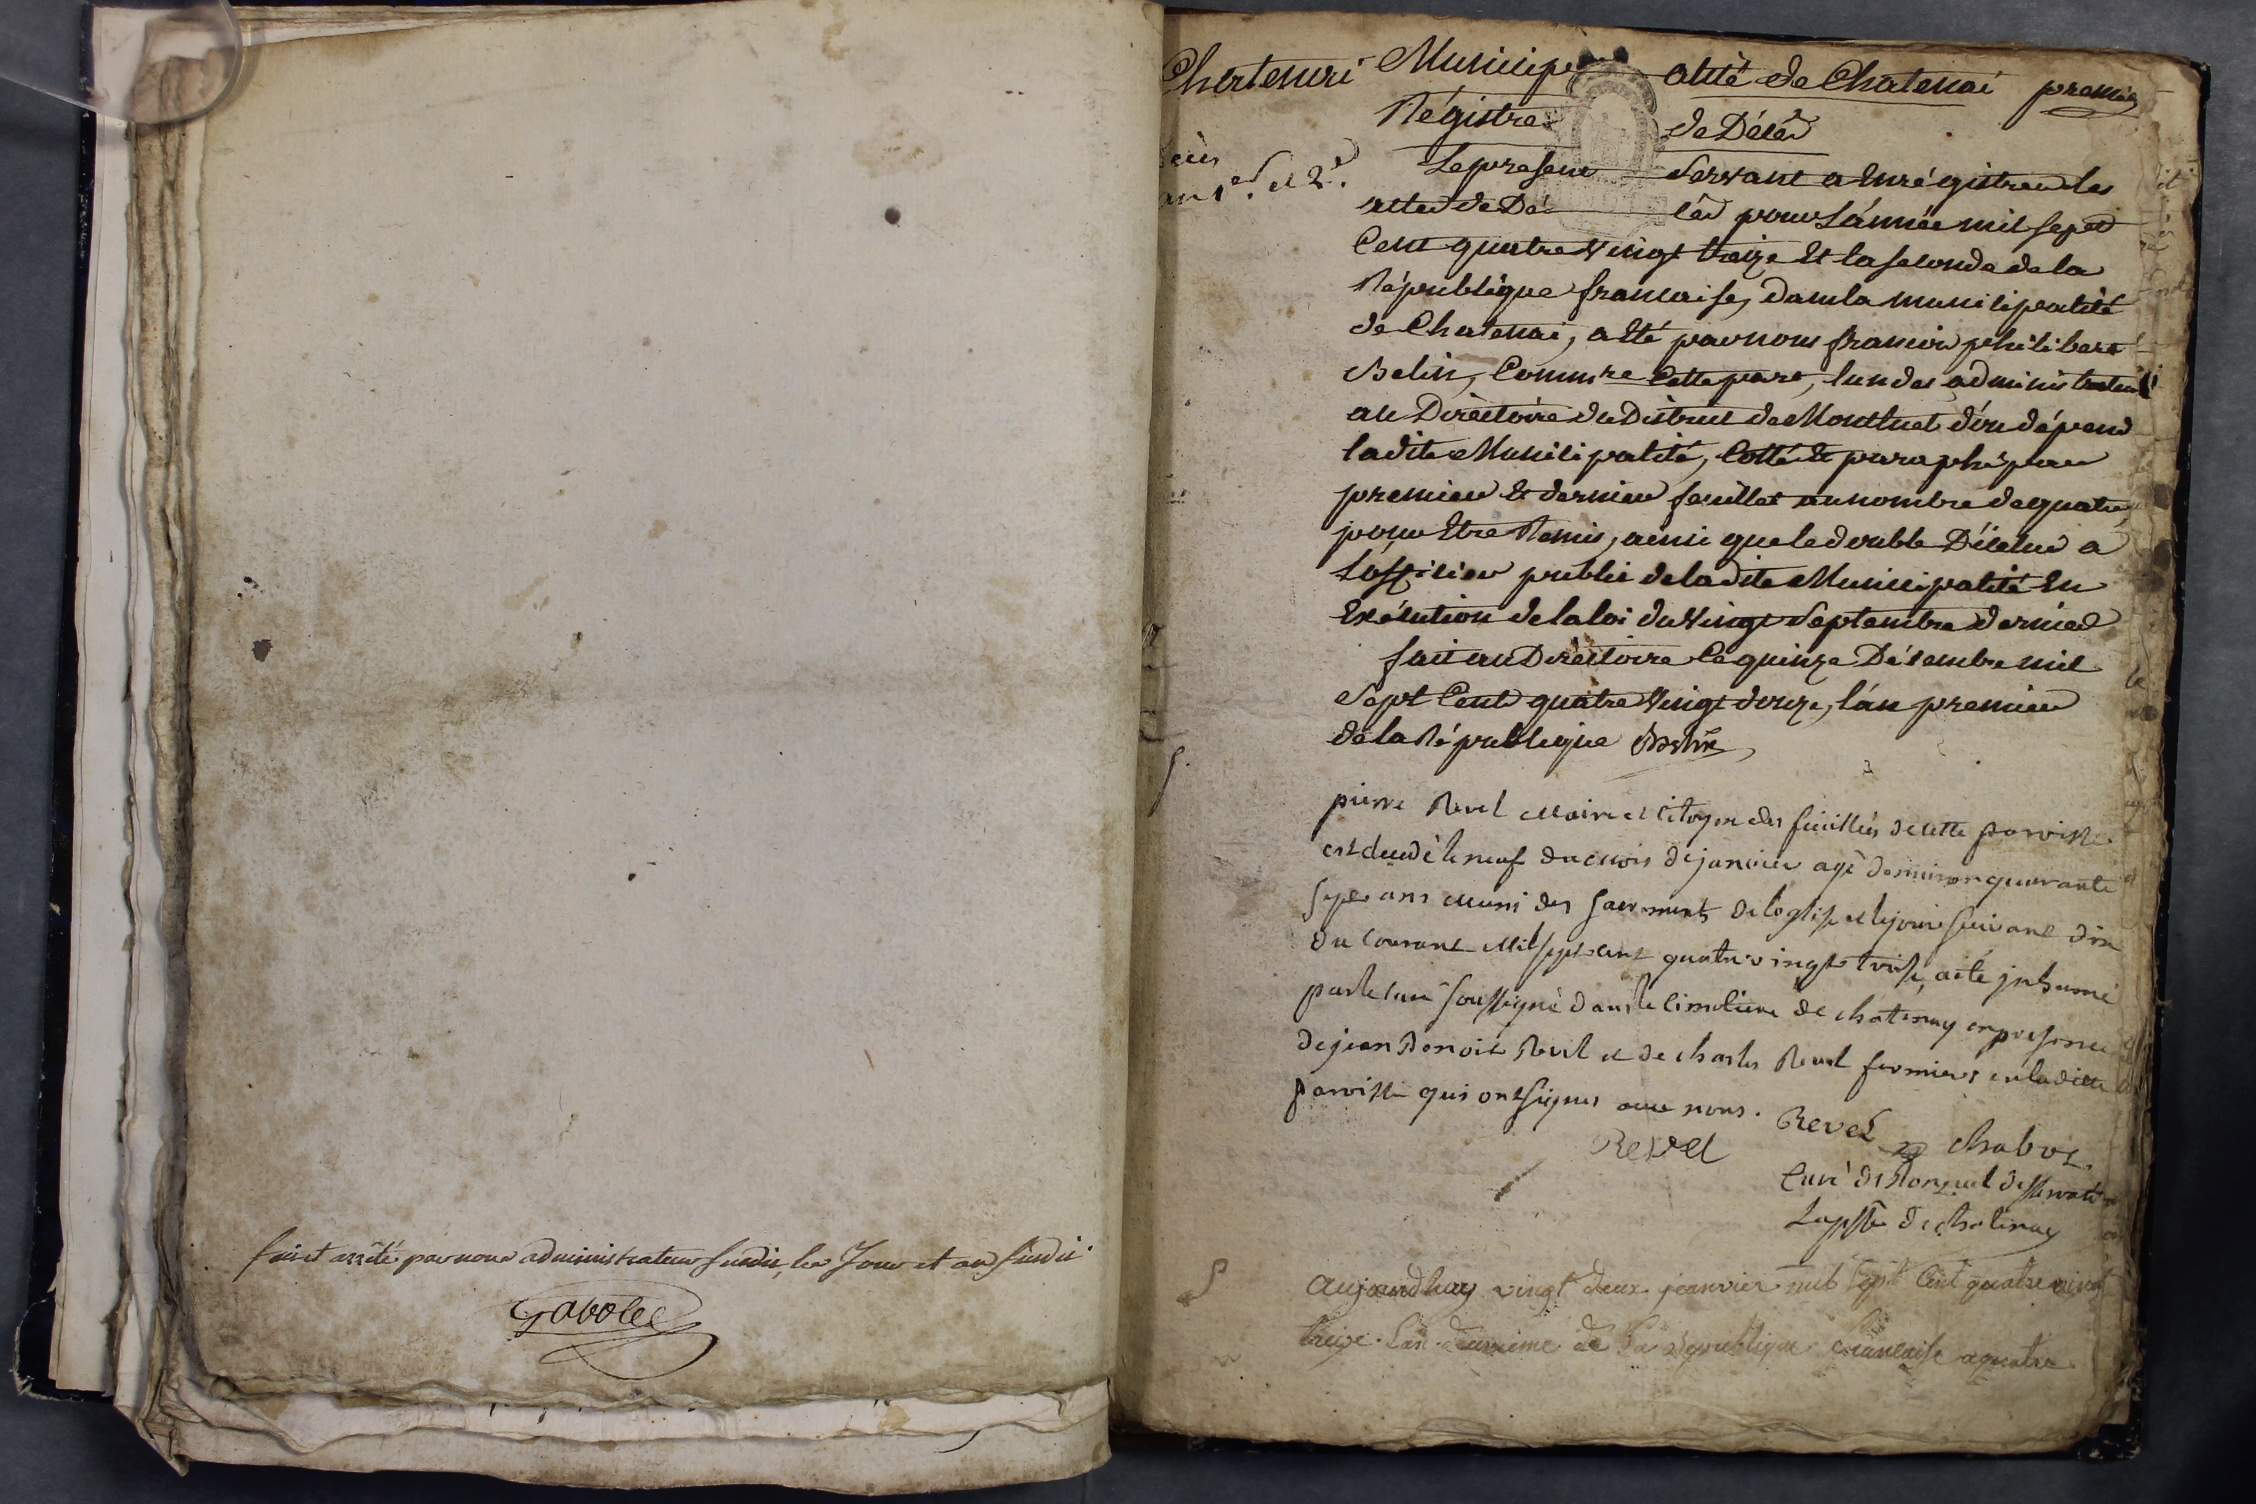 fait et arrêté par nous administrateur susdit, les Jour et an susdit
Gavolet
Chatenai Municip alité de Chatenai premier
Régistre de Décès
Décès
an 1er. et 2e.
Le present servant a Enrégistrer les
actes de Dé cès pour L'année mil sept
Cent quatre Vingt treize Et la seconde de la
République francaise, dans la municipalité
de Chatenai, a Eté par nous francois philibert
Belin, Commre Cette part, l'un des administrateurs
au Directoire du District de Montluel d'ou dépend
ladite Municipalité, Cotté Et paraphé par
premier Et dernier feuillet au nombre de quatre,
pour Etre Remis, ainsi que le double D'icelui a
L'officier public de ladite Municipalité En
Exécution de la loi du Vingt Septembre dernier
fait au Directoire Ce quinze Décembre mil
Sept Cent quatre Vingt douze, l'an premier
de la République Belin
pierre Revel Maire et Citoyen des feuillées de cette paroisse
est decedé le neuf du mois de janvier agé d'environ quarante
sept ans muni des sacrements de l'eglise et le jour suivant dix
du courant Mil sept cent quatre vingt treise, a eté inhumé
par le curé soussigné dans le cimetiere de chatenay en presence
de jean Benoit Revel et de charles Revel fermiers en la ditte
paroisse qui ont signés avec nous. Revel chabot
Revel
Curé de desservant
La psse de chatenay
aujourdhuy vingt deux janvier mil sept Cent quatre vingt
treize. L'an deuxieme de la République francaise a quatre